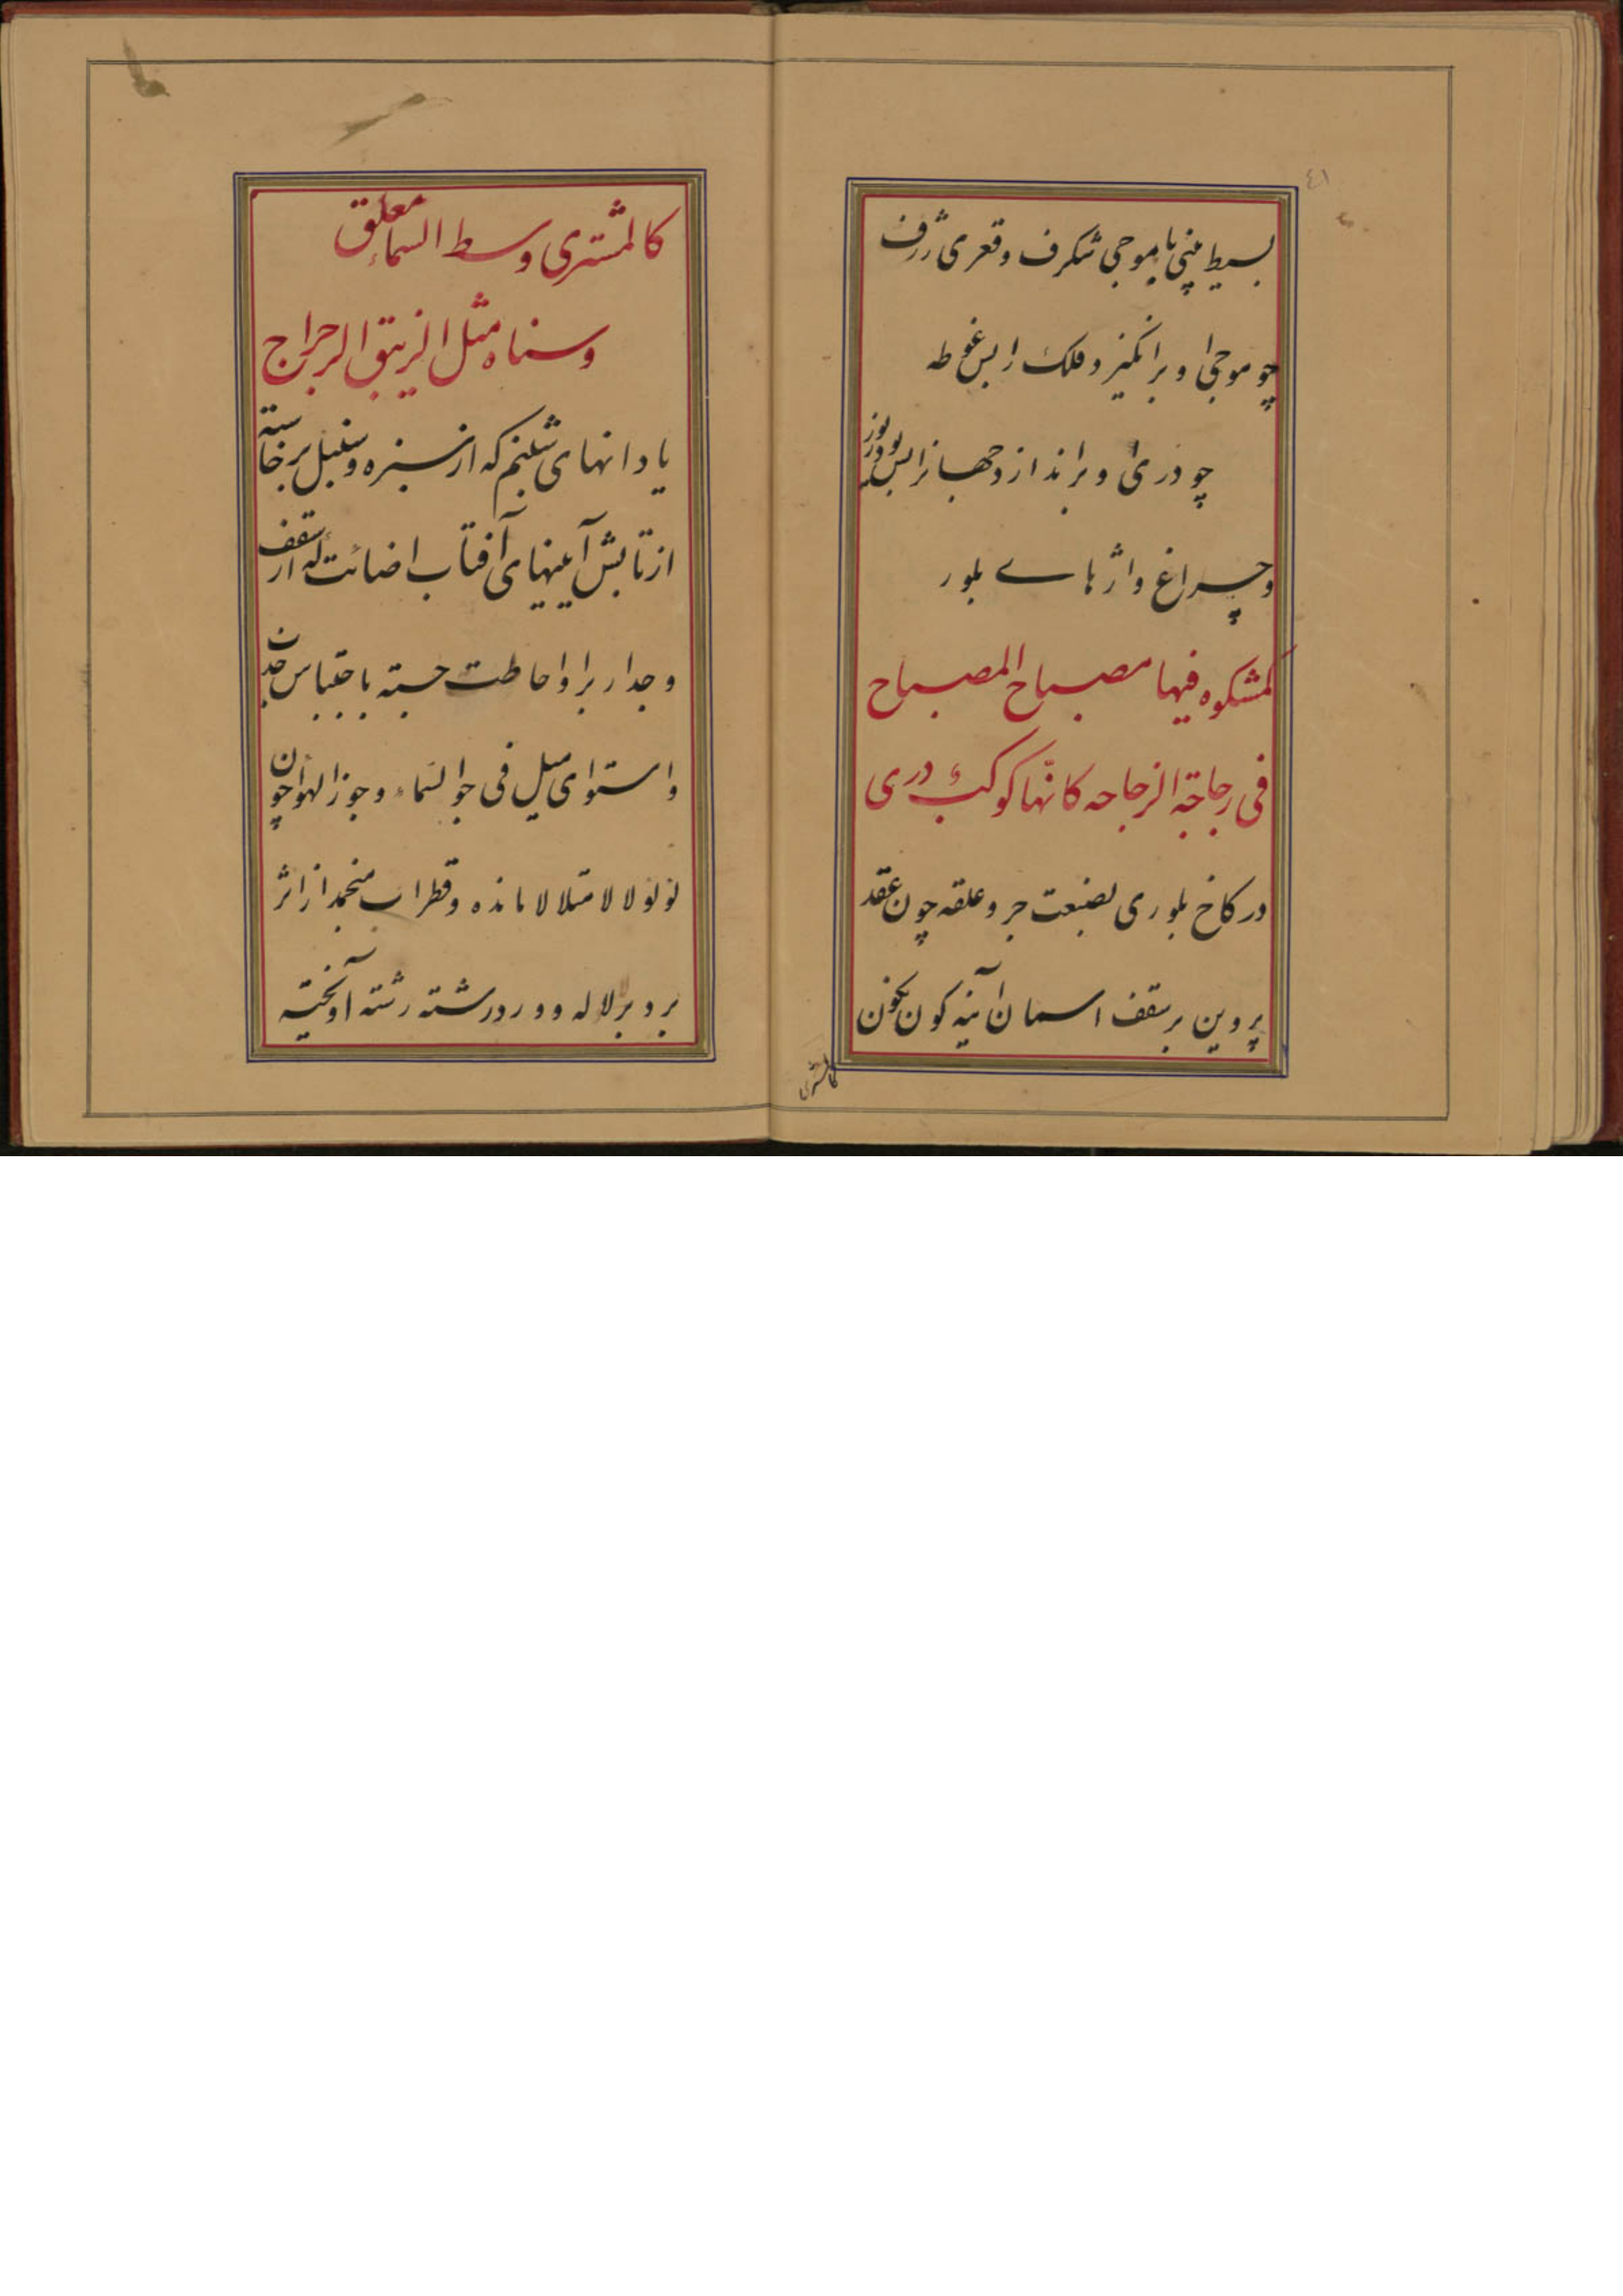 ٤١
بسیط بینی با موجی شکرف و قعری ژرف
چو موجی او برانکیزد فلک را بس غوطه
چو دری او براندازد جهانرا بس
و چراغ واژهاے بلور
کمشکوه فیها مصباح المصباح
فی زجاجة الزجاجه کانّها کوکب دری
در کاخ بلوری بصنعت جر و علقه چون عقد
پروین بر سقف اسمان آینه کون نکون
کالمشتری
کالمشتری وسط السماء معلق
وسناه مثل الزیبق الرجراج
یا دانهای شبنم که از سبزه و سنبل برخاسته
از تابش آینهای آفتاب اضائت که از سقف
و جدار برا و احاطت جسته باحتباس
و استوای میل فی جو السماء و جوز الهوا چون
لؤلؤ لالا متلالا مانده و قطرات منجمد از اثر
برد بر لاله و ورد رشته رشته آویخته